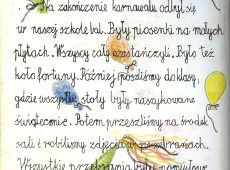 Na zakończenie karnawału odbył się
w naszej szkole bal. Były piosenki na małych
płytach. Wszyscy cały czas tańczyli. Było też
koło fortuny. Później poszliśmy do klasy,
gdzie wszystkie stoły były naszykowane
świątecznie. Potem przeszliśmy na środek
sali i robiliśmy zdjęcia w przebraniach.
Wszystkie przebrania były pomysłowe